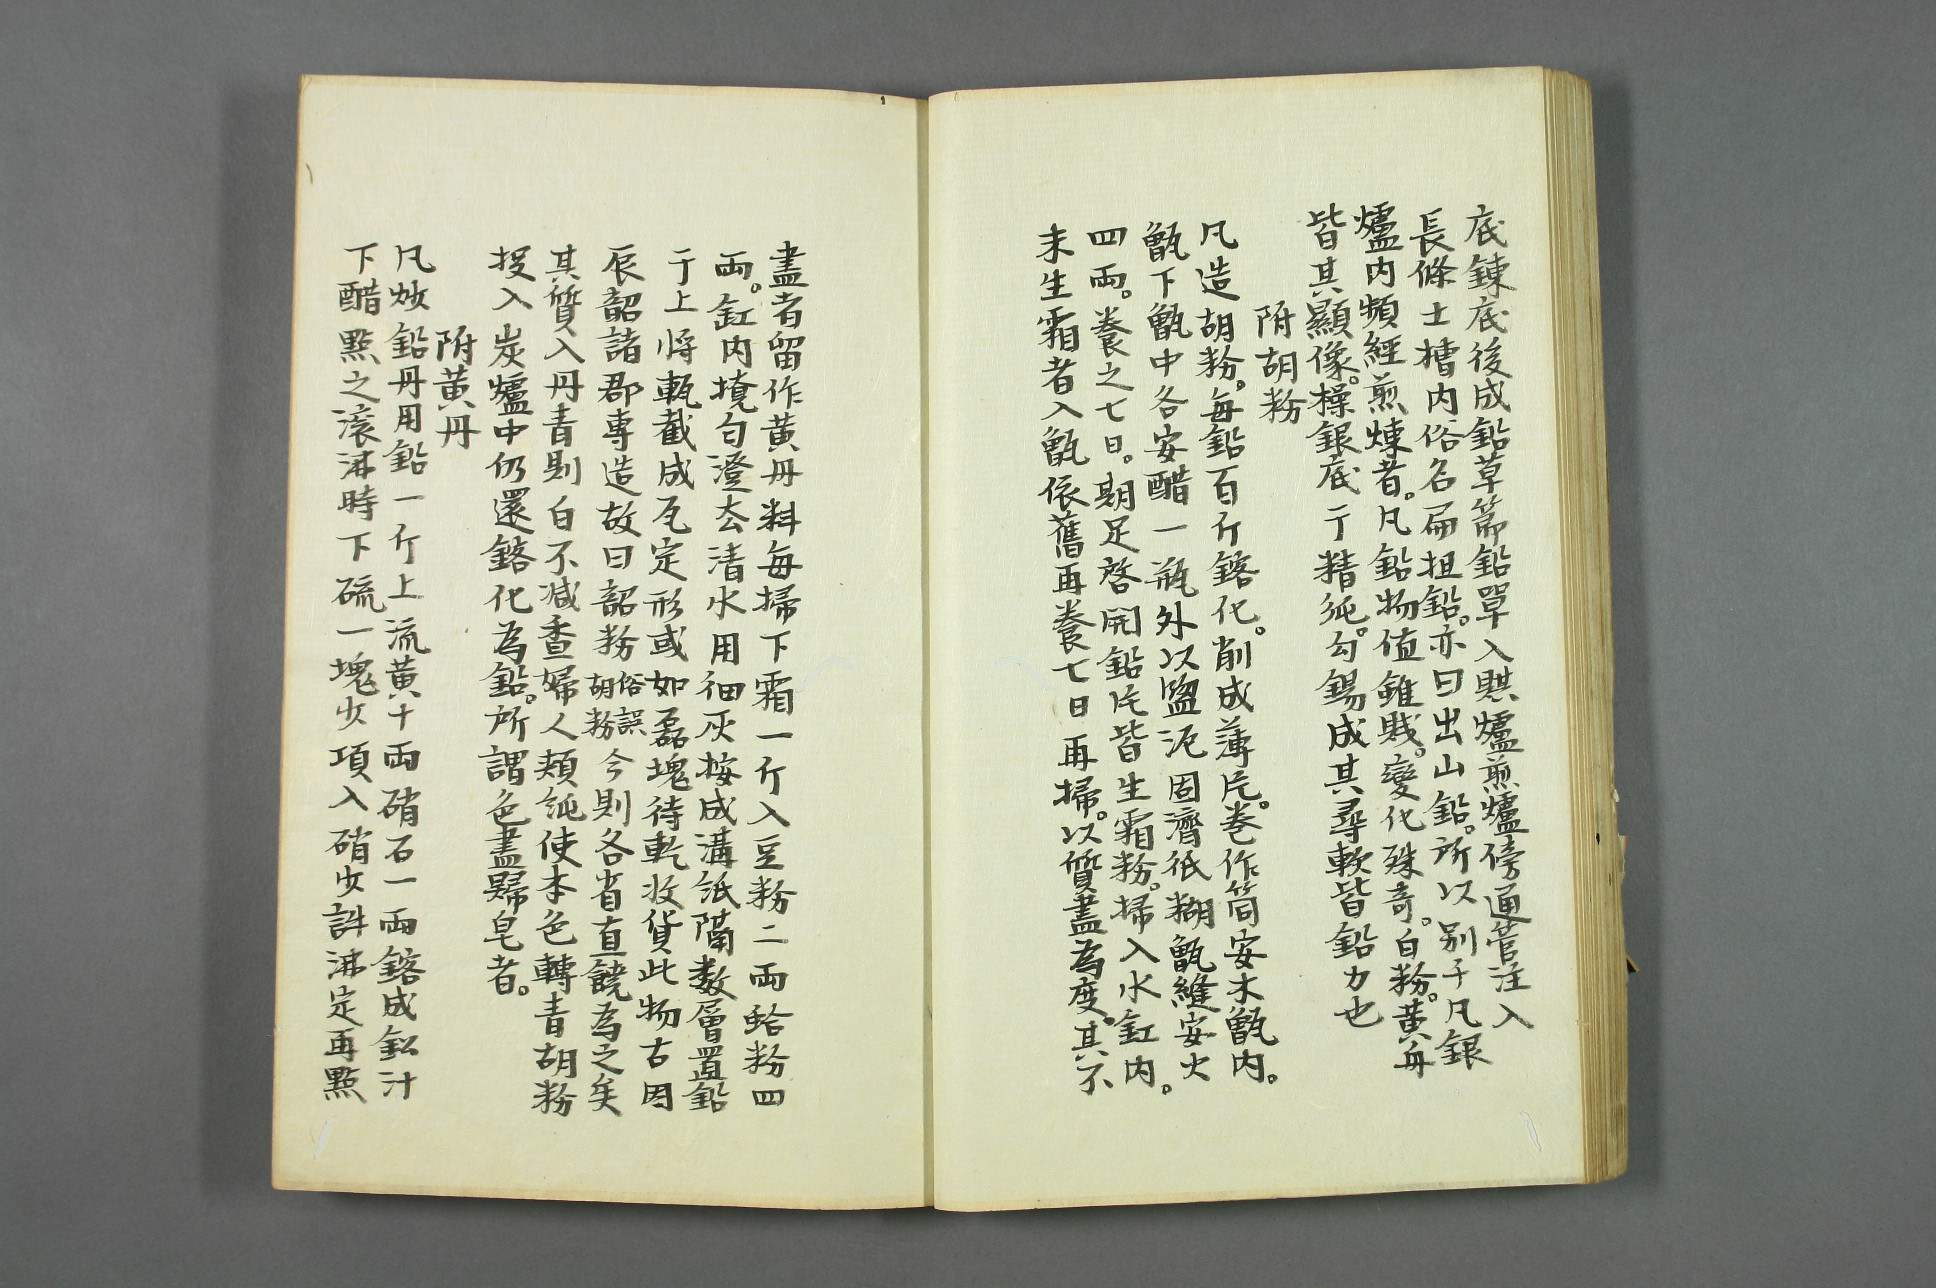 底鍊底後成鉛草節鉛單入䦨爐煎爐傍通管注入
長條土槽内俗名扁担鉛。亦曰出山鉛。所以别于凡銀
爐内頻經煎煉者。凡鉛物值雖賤。變化殊竒。白粉。黄丹
皆其顯像。操銀底亍精純。勾錫成其尋軟皆鉛力也
附胡粉
凡造胡粉。每鉛百斤鎔化。削成薄片。巻作筒安木甑内。
甑下甑中各安醋一瓶外以盬泥固濟紙糊甑縫安火
四両。養之七日。期足啓開鉛片皆生霜粉。掃入水缸内。
未生霜者入甑依舊再養七日再掃。以質盡為度。其不
盡者留作黄丹料每掃下霜一斤入豆粉二両蛤粉四
両。缸内撓匀澄去清水用细灰按成溝紙隔数層置鉛
亍上将軏截成瓦定形或如磊塊待乾收貨此物古因
辰韶諸郡專造故曰韶粉俗誤胡粉今則各省直饒為之矣
其質入丹青則白不减查婦人頬䋄使本色轉青胡粉
投入炭爐中仍還鎔化為鉛。所謂色盡歸皂者。
附黄丹
凡炒鉛丹用鉛一斤土流黄十両硝石一両鎔成鈆汁
下醋點之滚沸時下硫一塊少項入硝少許沸定再點